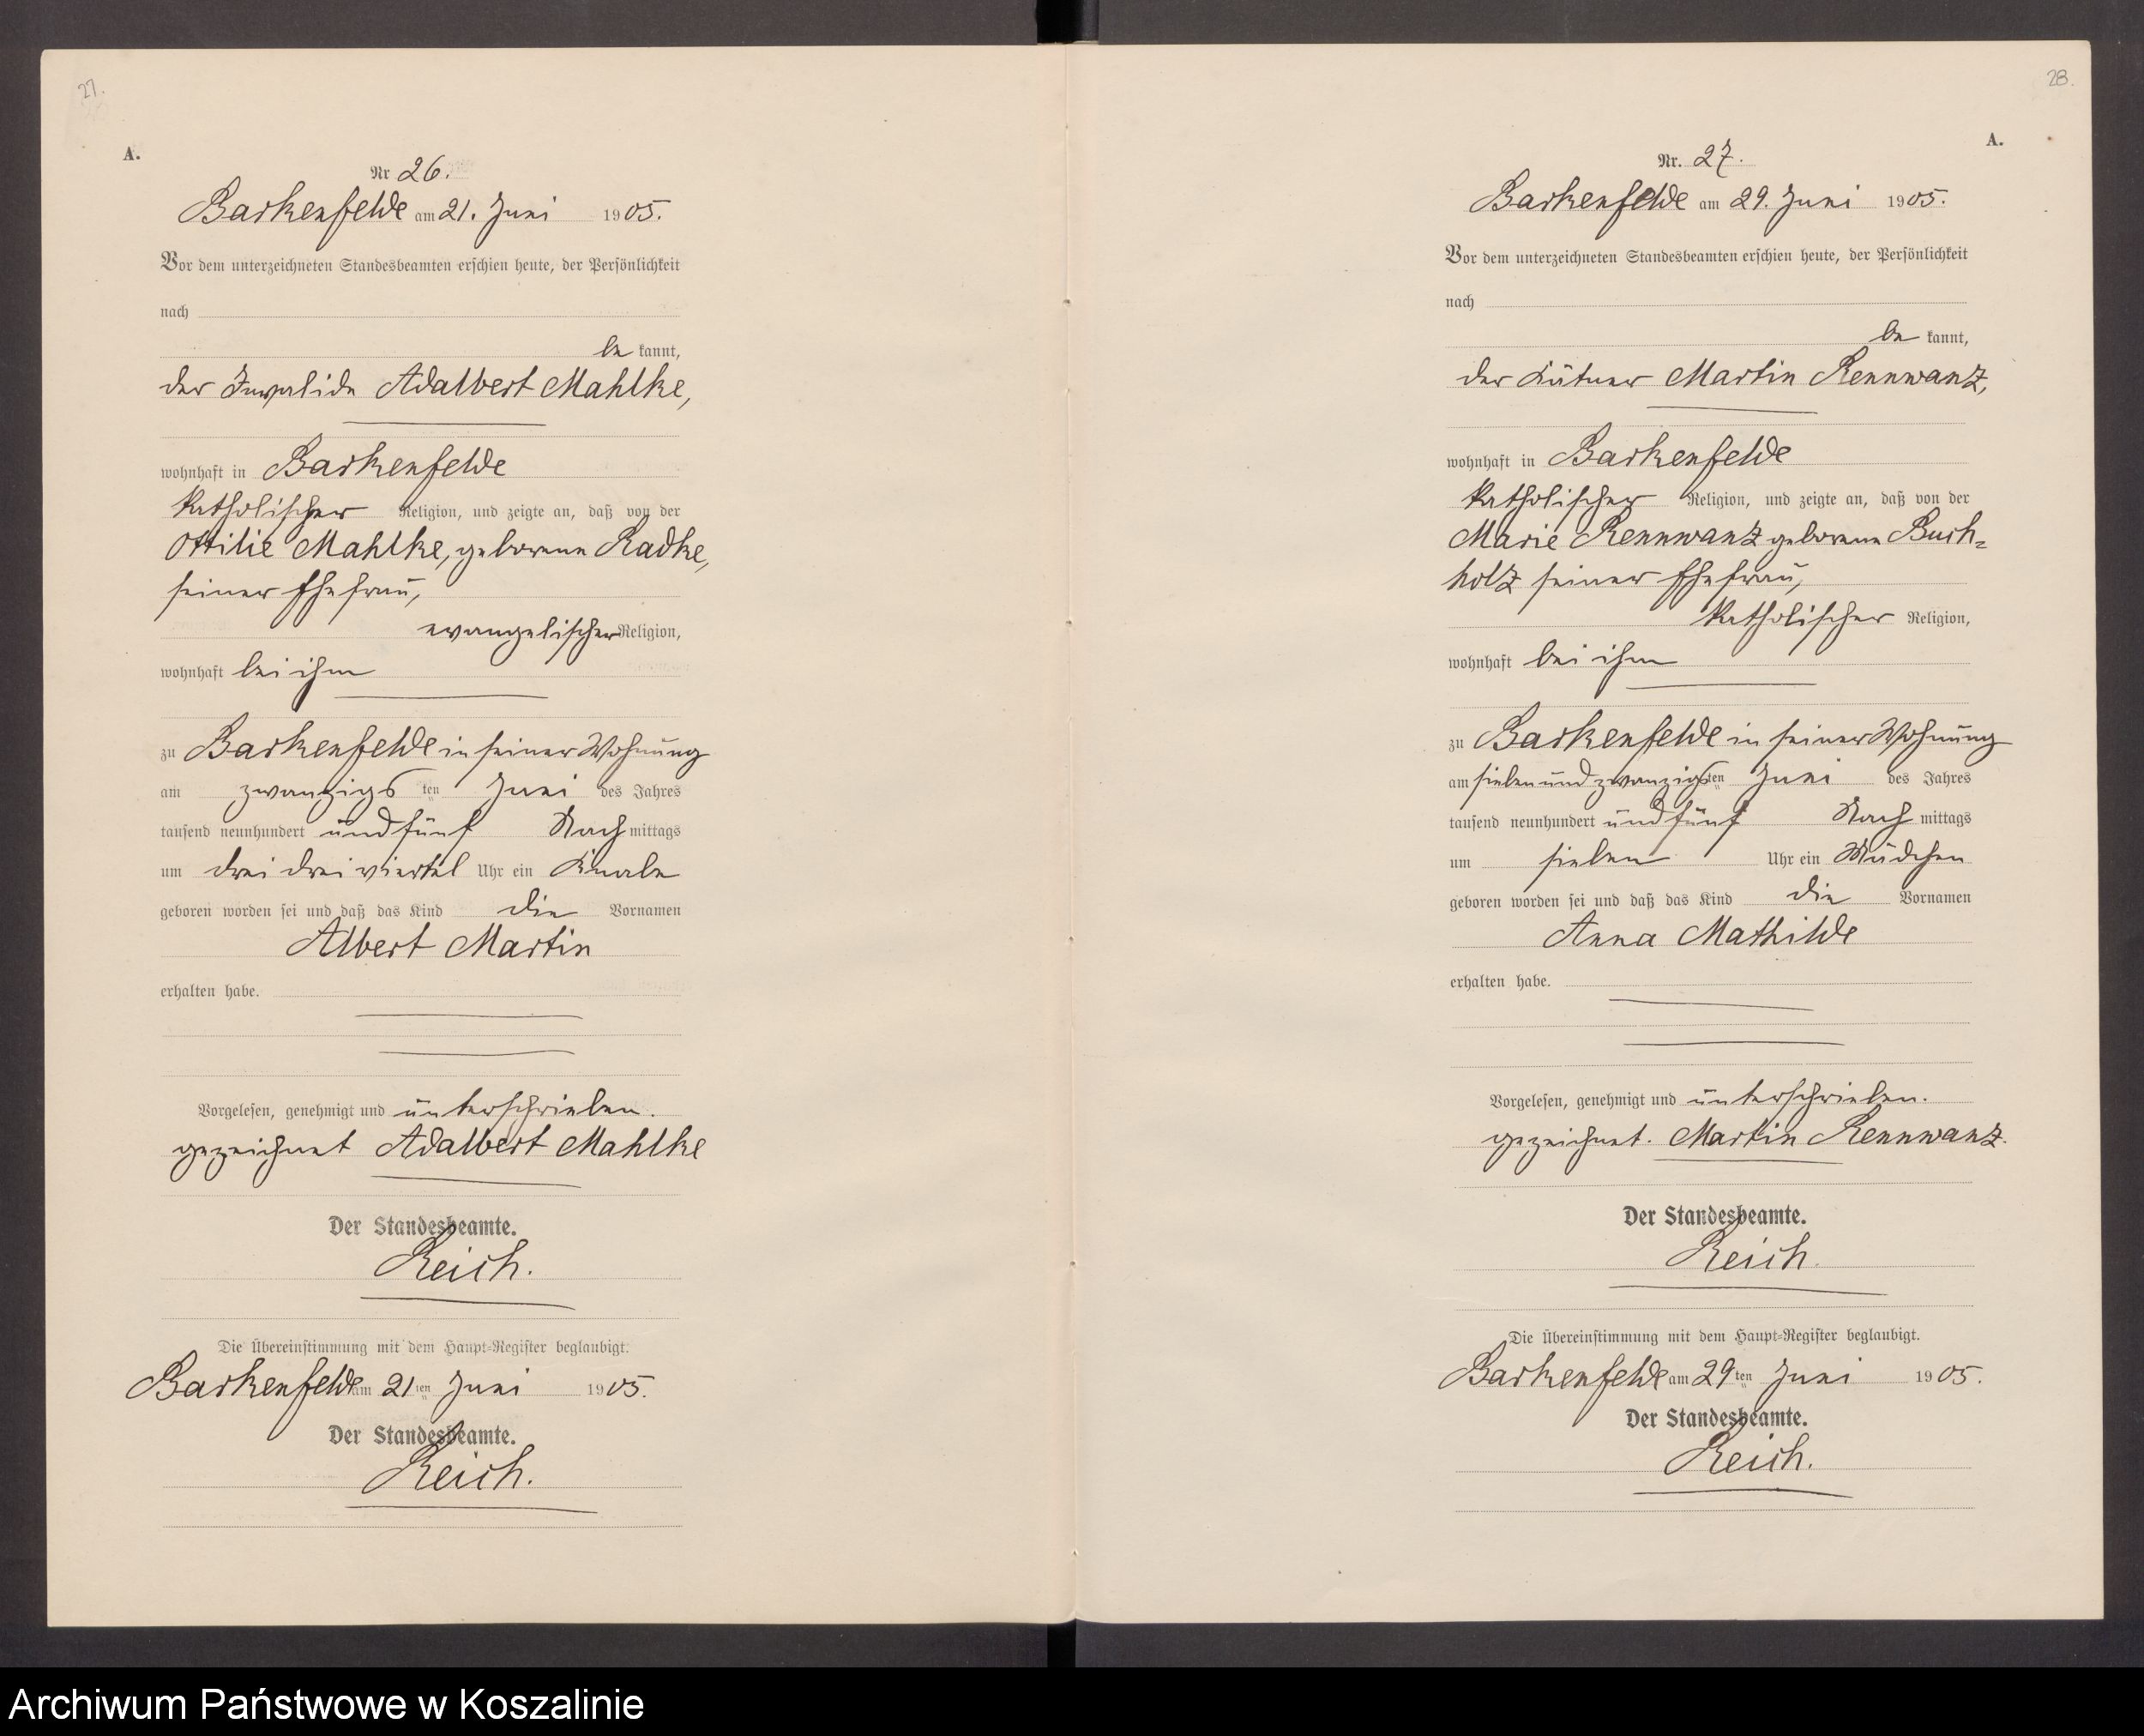 27.
A.
Nr 26.
Barkenfelde am 21. Juni 1905.
Vor dem unterzeichneten Standesbeamten erschien heute, der Persönlichkeit
nach
be kannt,
der Invalide Adalbert Mahlke,
wohnhaft in Barkenfelde
katholischer Religion, und zeigte an, daß von der
Ottilie Mahlke, geborene Radke,
seiner Ehefrau,
evangelischer Religion,
wohnhaft bei ihm
zu Barkenfelde in seiner Wohnung
am zwanzigs ten Juni des Jahres
tausend neunhundert und fünf Nach mittags
um drei dreiviertel Uhr ein Knabe
geboren worden sei und daß das Kind die Vornamen
Albert Martin
erhalten habe.
Vorgelesen, genehmigt und unterschrieben.
gezeichnet Adalbert Mahlke
Der Standesbeamte.
Reich.
Die Übereinstimmung mit dem Haupt-Register beglaubigt.
Barkenfelde am 21 ten Juni 1905.
Der Standesbeamte.
Reich.
28.
A.
Nr. 27.
Barkenfelde am 29. Juni 1905.
Vor dem unterzeichneten Standesbeamten erschien heute, der Persönlichkeit
nach
be kannt,
der Kätner Martin Rennwanz,
wohnhaft in Barkenfelde
katholischer Religion, und zeigte an, daß von der
Marie Rennwanz geborene Buch=
holz seiner Ehefrau,
katholischer Religion,
wohnhaft bei ihm
zu Barkenfelde in seiner Wohnung
am siebenundzwanzigs ten Juni des Jahres
tausend neunhundert und fünf Nach mittags
um sieben Uhr ein Mädchen
geboren worden sei und daß das Kind die Vornamen
Anna Mathilde
erhalten habe.
Vorgelesen, genehmigt und unterschrieben.
gezeichnet. Martin Rennwanz.
Der Standesbeamte.
Reich.
Die Übereinstimmung mit dem Haupt-Register beglaubigt.
Barkenfelde am 29 ten Juni 1905.
Der Standesbeamte.
Reich.
Archiwum Państwowe w Koszalinie